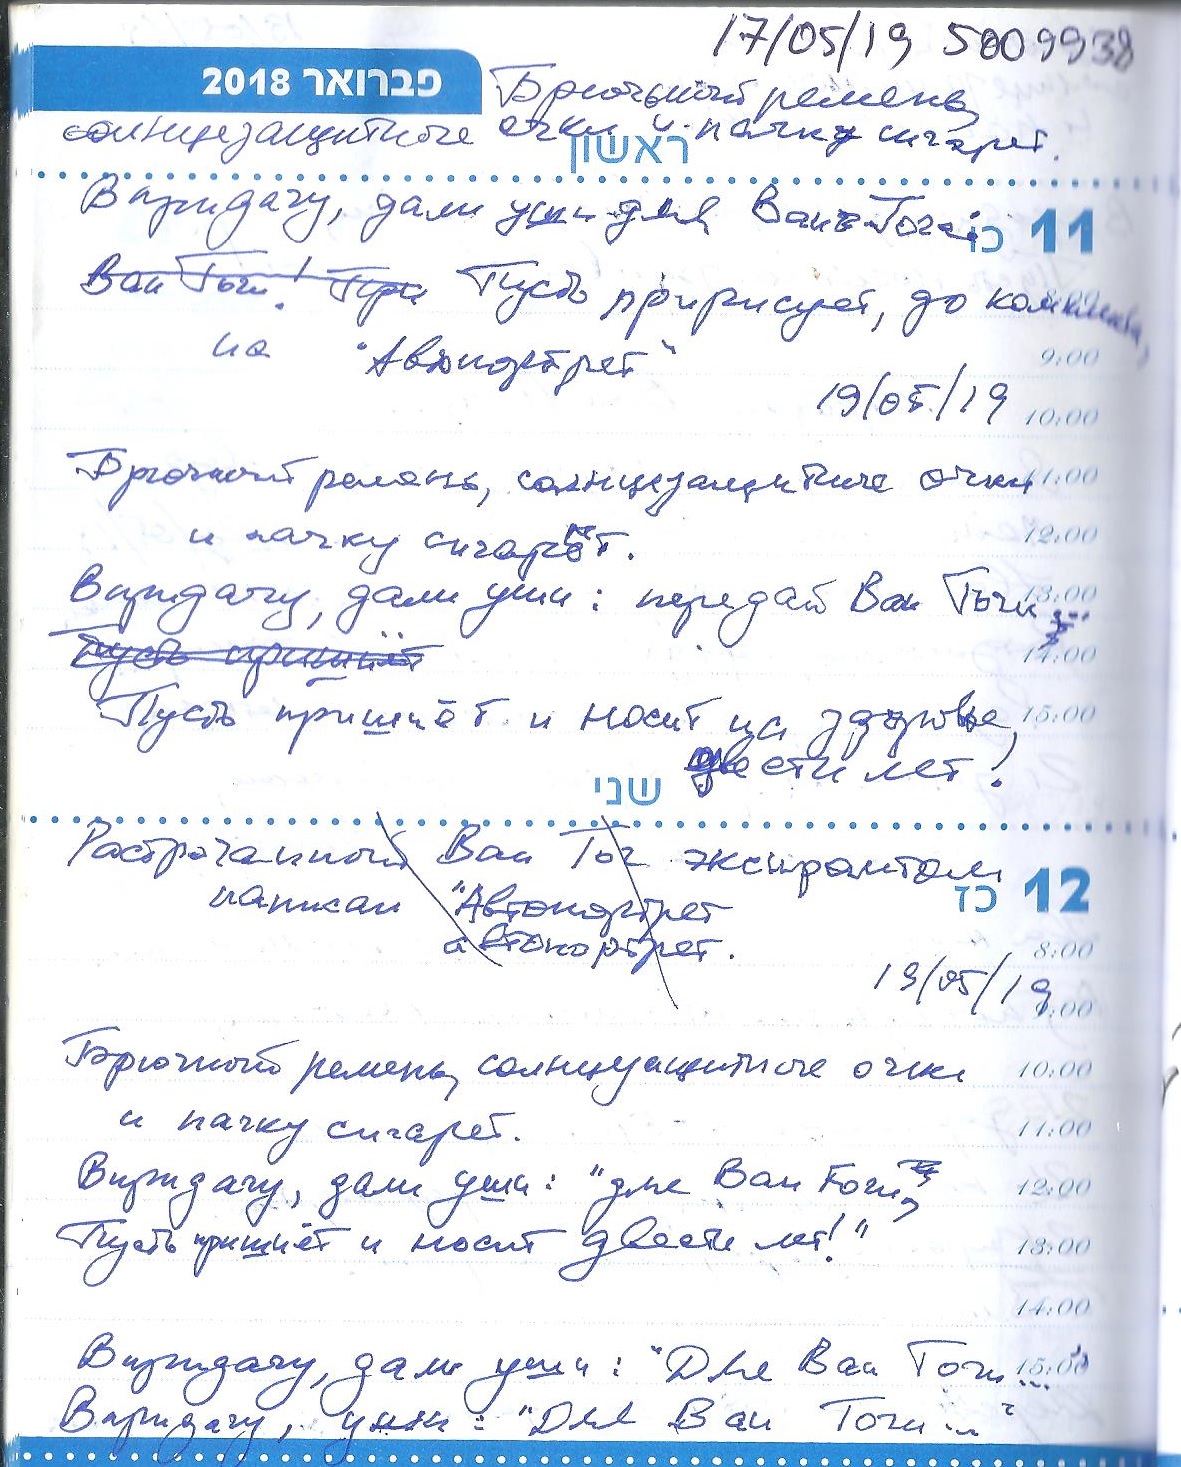 17/05/19 5009938
פברואר 2018
Брючный ремень,
солнцезащитные очки и пачку сигарет.
ראשון
В придачу, дали уши для Ван Гога:
11 כו
Ван Гоги! При Пусть пририсует, до комплекта,
на "Автопортрет"
9:00
19/05/19
10:00
Брючный ремень, солнцезащитные очки
11:00
и пачку сигарет.
12:00
В придачу, дали уши: передай Ван Гоги...
13:00
Пусть пришьёт
14:00
Пусть пришьёт и носит на здоровье,
15:00
двести лет!
שני
Растроганный Ван Гог экспромтом
12 כז
написал "Автопортрет
автопортрет.
8:00
19/05/19
9:00
Брючный ремень, солнцезащитные очки
10:00
и пачку сигарет.
11:00
В придачу, дали уши: "для Ван Гоги,
12:00
Пусть пришьёт и носит двести лет!"
13:00
14:00
В придачу, дали уши: "Для Ван Гоги...
15:00
В придачу, уши: "Для Ван Гоги..."